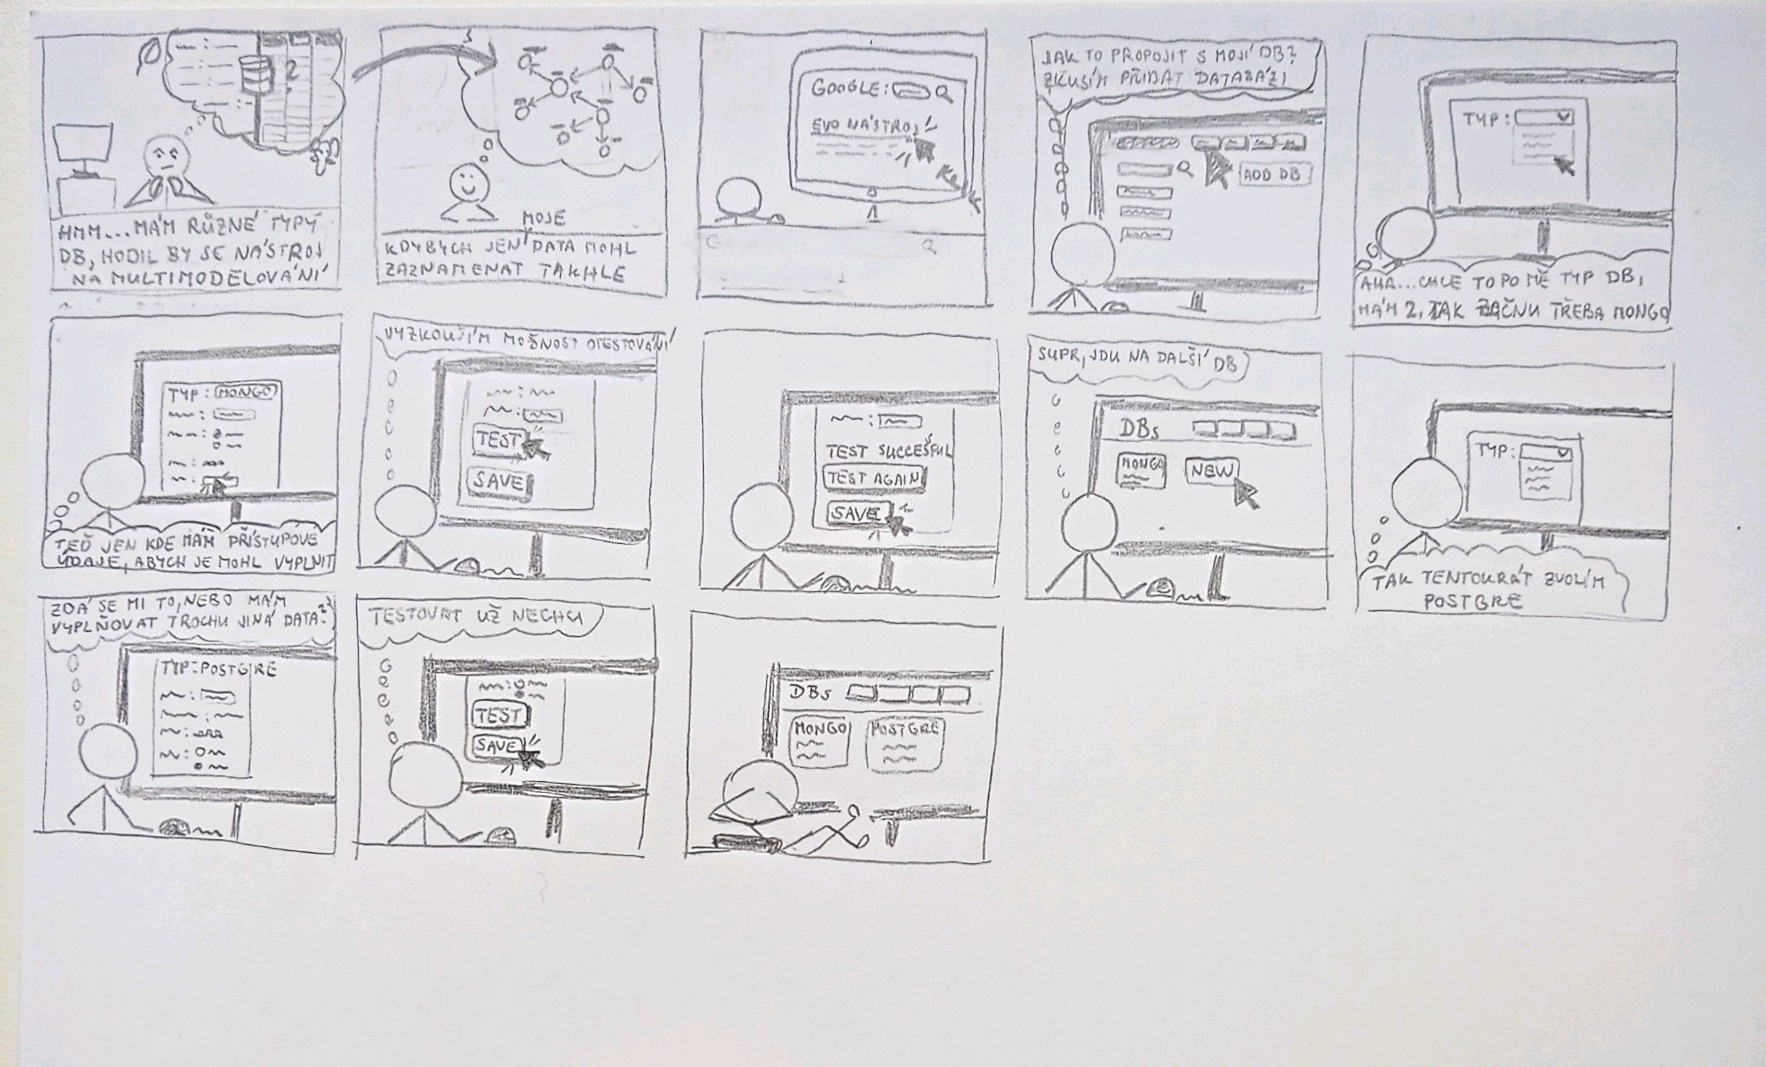 HMM...MÁM RŮZNÉ TYPY
DB, HODIL BY SE NÁSTROJ
NA MULTIMODELOVÁNÍ
MOJE
KDYBYCH JEN DATA MOHL
ZAZNAMENAT TAKHLE
GOOGLE:
EVO NÁSTROJ
JAK TO PROPOJIT S MOJÍ DB?
ZKUSÍM PŘIDAT DATABÁZI
ADD DB
TYP:
AHA...CHCE TO PO MĚ TYP DB,
MÁM 2, TAK ZAČNU TŘEBA MONGO
TYP: MONGO
TEĎ JEN KDE MÁM PŘÍSTUPOVÉ
ÚDAJE, ABYCH JE MOHL VYPLNIT
VYZKOUŠÍM MOŽNOST OTESTOVÁNÍ
TEST
SAVE
TEST SUCCESFUL
TEST AGAIN
SAVE
SUPR, JDU NA DALŠÍ DB
DBs
MONGO
NEW
TYP:
TAK TENTOKRÁT ZVOLÍM
POSTGRE
ZDÁ SE MI TO, NEBO MÁM
VYPLŇOVAT TROCHU JINÁ DATA?
TYP:POSTGRE
TESTOVAT UŽ NECHCI
TEST
SAVE
DBs
MONGO
POSTGRE